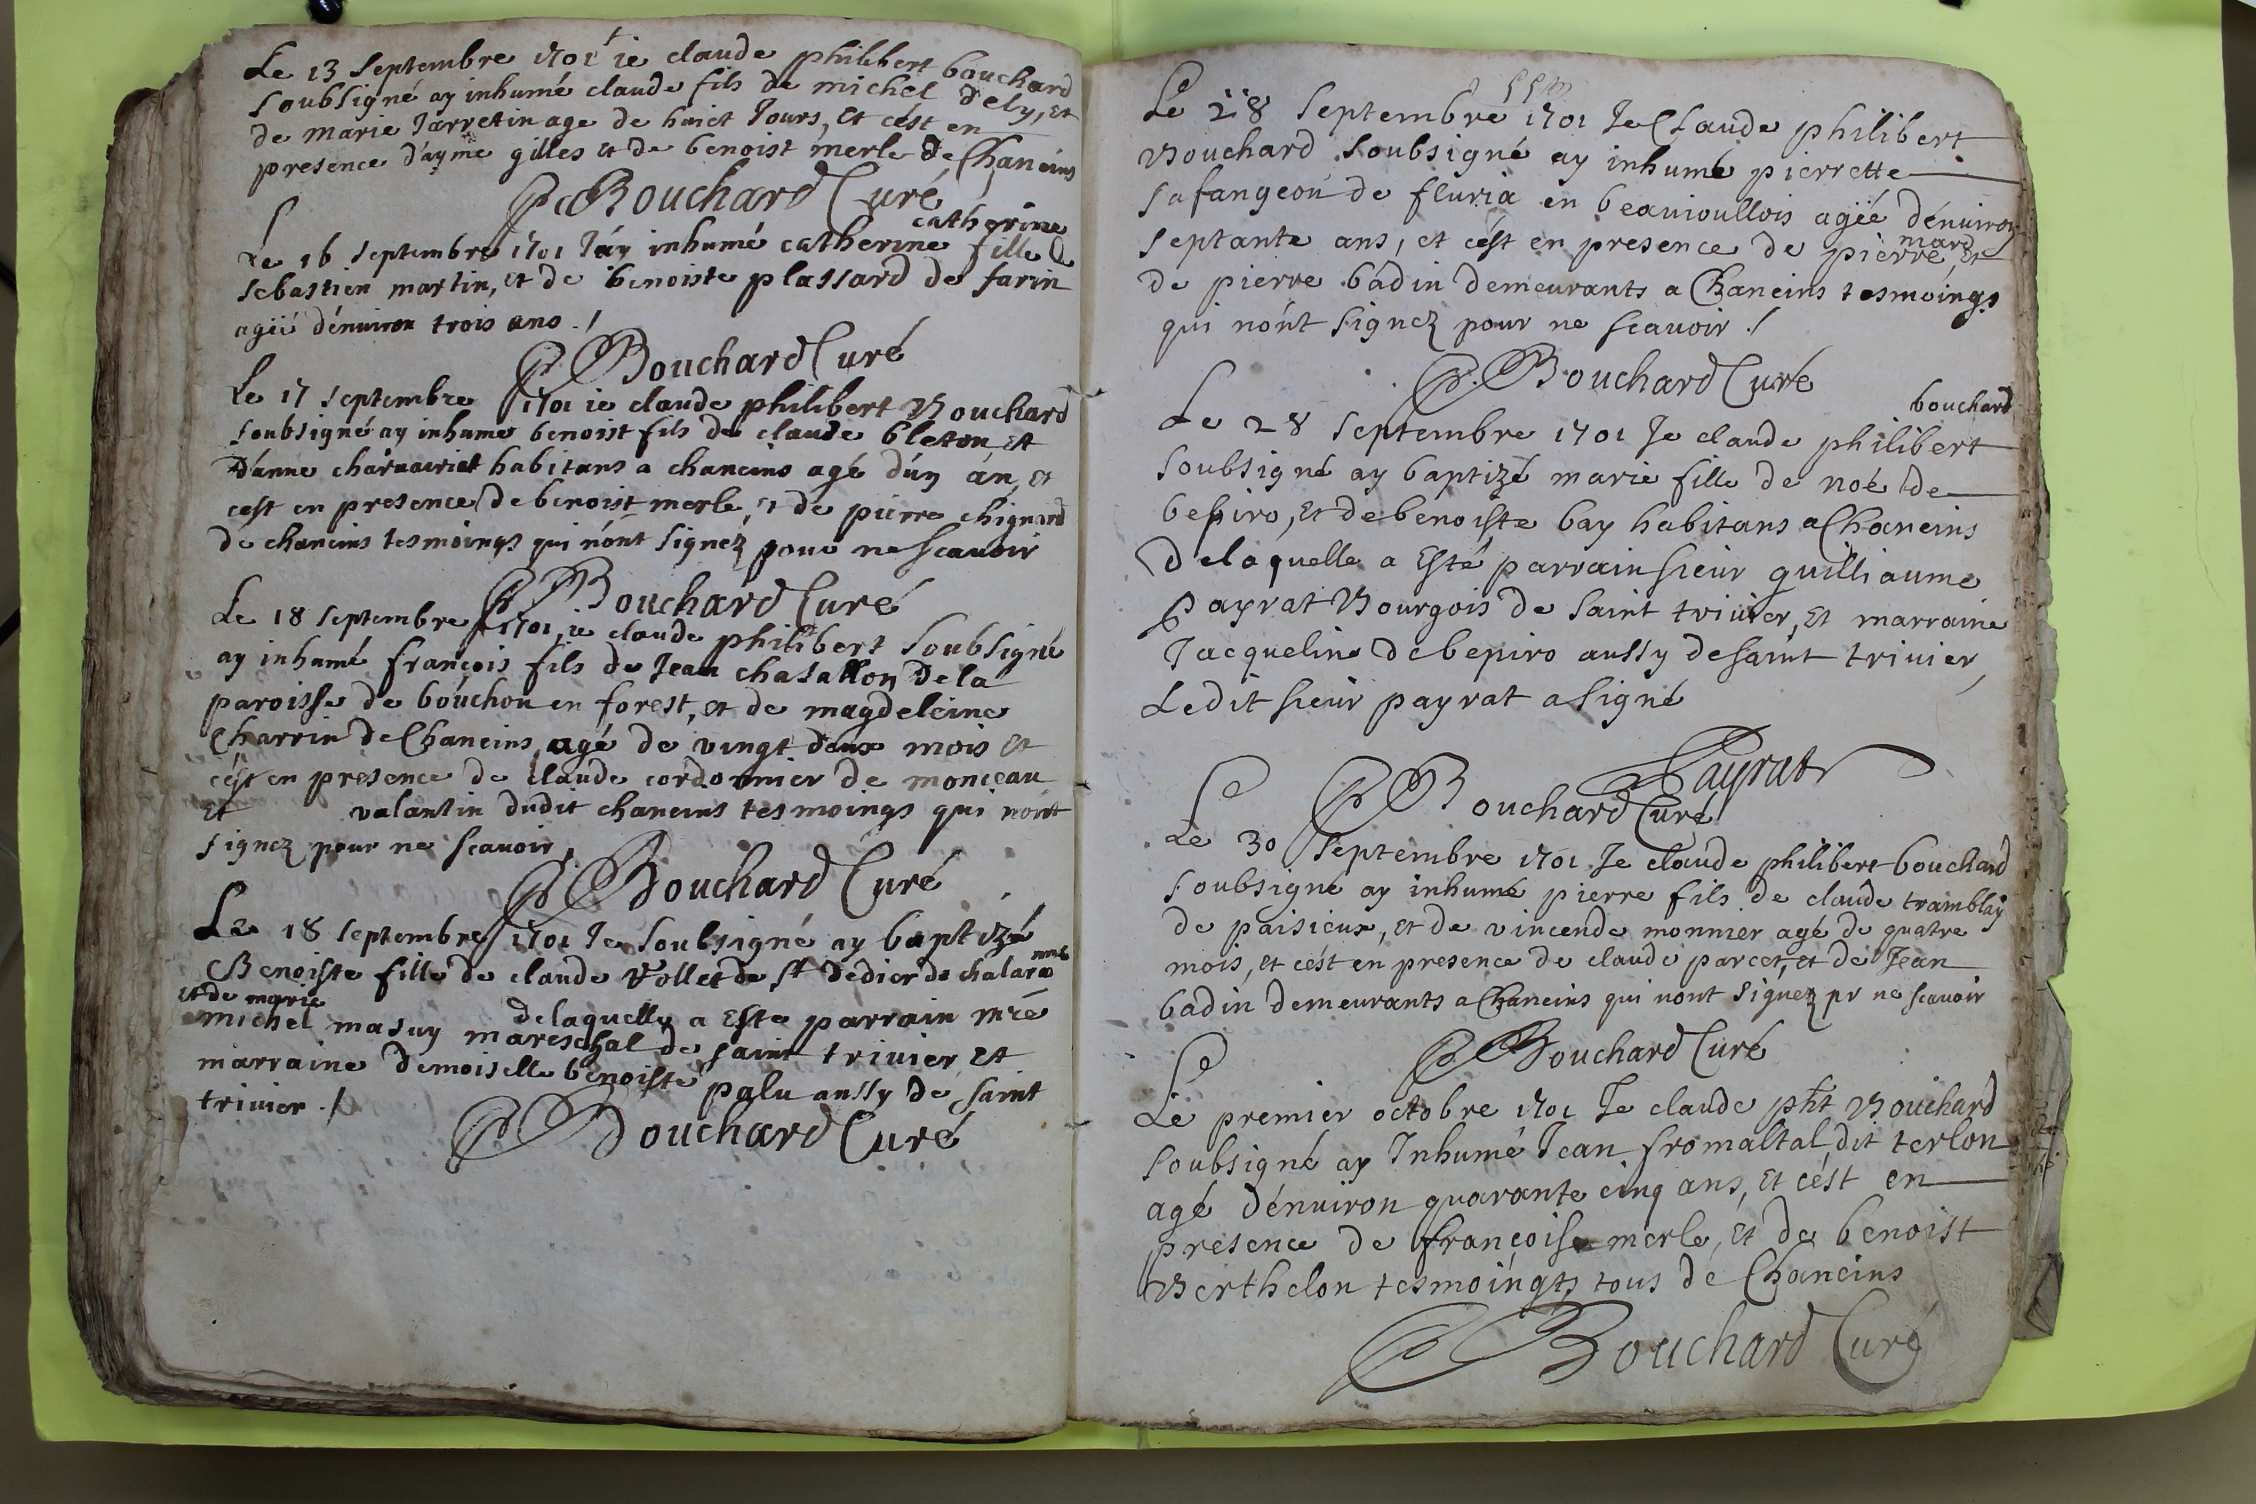 Le 13 Septembre 1701 ie claude philibert bouchard
soubsigné ay inhumé claude fils de michel dely, et
de marie Jarretin age de huict Jours, Et cést en
presence d'ayme gilles et de benoist merle de Chaneins
Bouchard Curé
catherine
Le 16 septembre 1701 Jáy inhumé catherine fille de
sebastien martin, et de benoiste plassard de farin
agéé dénuiron trois ans ./
Bouchard Curé
Le 17 septembre 1701 ie claude philibert Bouchard
soubsigné ay inhume benoist fils de claude bleton, et
d'anne charuairiat habitans a chaneins agé dún án, et
cest en presence de benoist merle, et de pierre chignard
de chaneins tesmoings qui nónt signez pour ne scauoir
Bouchard Curé
Le 18 septembre 1701, ie claude philibert soubsigné
ay inhumé françois fils de Jean chasallon de la
paroisse de bouchon en forest, et de magdeleine
Charrin de Chaneins agé de vingt deux mois et
cést en presence de claude cordonnier de monceau
et valantin dudit chaneins tesmoings qui nónt
signez pour ne scauoir,
Bouchard Curé
Le 18 septembre 1701 Je soubsigné ay baptizé
Benoiste fille de claude Vollet de st dedier de chalar
et de marie
delaquelle a Este parrain mre
michel masuy mareschal de saint triuier et
marraine demoiselle benoiste palu aussy de saint
triuier ./
Bouchard Curé
Le 28 septembre 1701 Je Claude philibert
Bouchard soubsigné ay inhumé pierrette
safangeon de fluria en beauioullois agéé dénuiron
septante ans, et cést en presence de pierre mard, et
de pierre badin demeurants a Chaneins tesmoings
qui nónt signez pour ne scauoir ./
Bouchard Curé
bouchard
Le 28 septembre 1701 Je claude philibert
soubsigné ay baptizé marie fille de noé de
bepiro, et de benoiste bay habitans a Chaneins
delaquelle a Esté parrain sieur guilliaume
Payrat Bourgois de saint triuier, Et marraine
Jacqueline de bepiro aussy de saint triuier,
Ledit sieur payrat a signé
Payrat
Bouchard Curé
Le 30 septembre 1701 Je claude philibert bouchard
soubsigné ay inhumé pierre fils de claude tramblay
de paisieux, et de vincende monnier agé de quatre
mois, et cést en presence de claude parcet, et de Jean
badin demeurants a Chaneins qui nont signez pr ne scauoir
Bouchard Curé
Le premier octobre 1701 Je claude pht Bouchard
soubsigné ay Inhumé Jean fromaltal, dit terlon
agé dénuiron quarante cinq ans, Et cést en
presence de françoise merle, et de benoist
Berthelon tesmoingts tous de Chaneins
Bouchard Curé